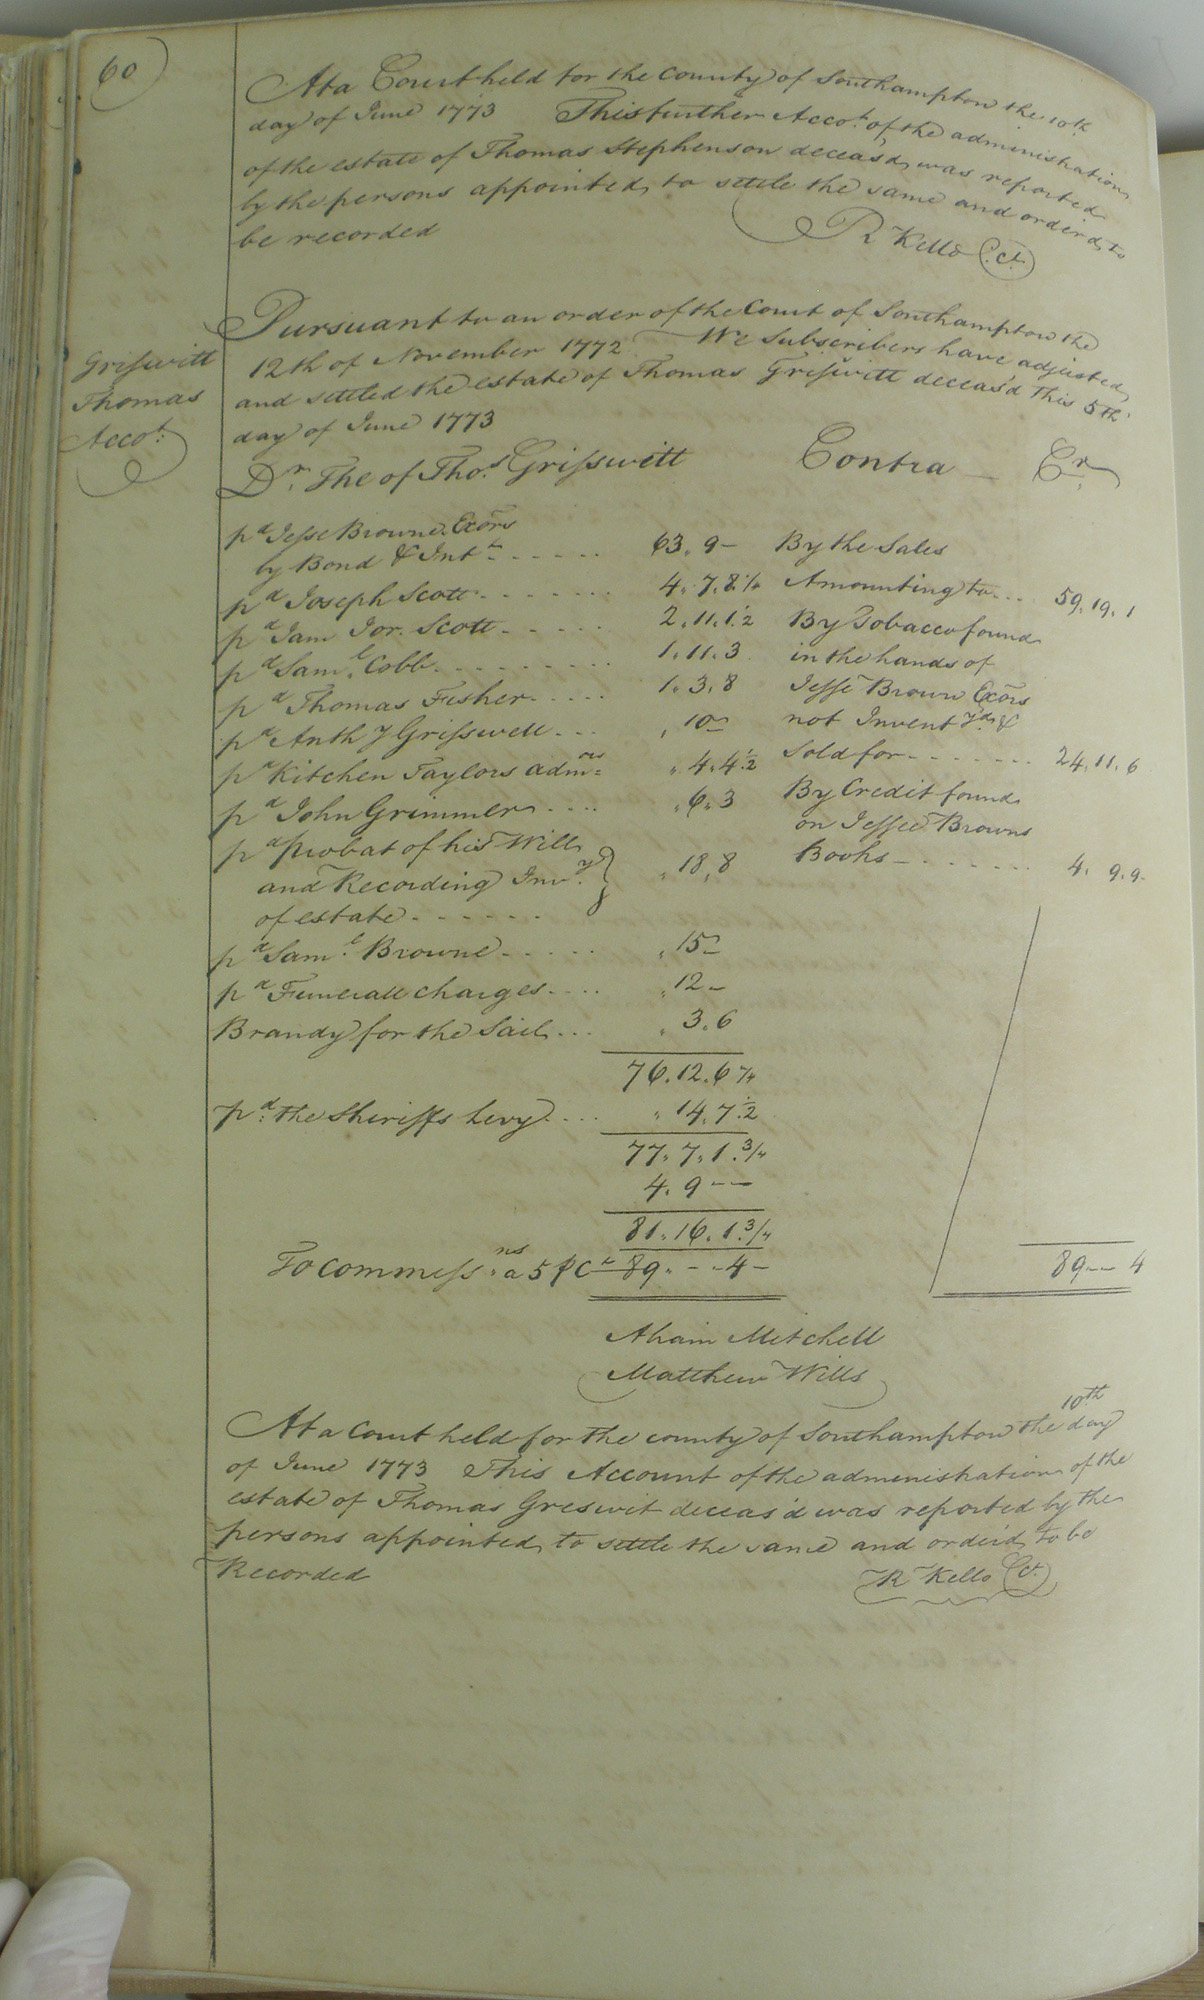 60
At a Court held for the County of Southampton the 10th
day of June 1773 This further Accot. of the administration
of the estate of Thomas Stephenson deceas'd was reported
by the persons appointed to settle the same and order'd to
be recorded
R Kello Ct.
Grißwitt
Thomas
Accot:
Pursuant to an order of the Court of Southampton the
12th of November 1772 We Subscribers have adjusted
and settled the estate of Thomas Grißwitt deceas'd this 5th
day of June 1773
Dr. The of Thos. Grißwitt Contra Cr.
pd Jesse Browne Exors
by Bond & Intt ..... 63. 9 - By the Sales
pd Joseph Scott ..... 4. 7. 8 1/4 Amounting to ... 59. 19. 1
pd Jam Jor. Scott ..... 2. 11. 1 1/2 By Tobacco found
pd Saml. Cobb ..... 1. 11. 3 in the hands of
pd Thomas Fisher ..... 1. 3. 8 Jesse Brown Exors
pd Anthy Grißwell ... , 10 - not Inventyd. &
pd Kitchen Taylors admors , 4. 4 1/2 Sold for ....... 24. 11. 6
pd John Grimmer .... , 6. 3 By Credit found
pd probat of his Will on Jessee Browns
and Recording Invy. , 18. 8 Books ...... 4. 9. 9
of estate ......
pd Saml. Browne ..... , 15 -
pd Funerall charges .... , 12 -
Brandy for the Sail ... , 3. 6
76. 12. 6 1/4
pd. the Sheriffs Levy .... , 14. 7 1/2
77. 7. 1 3/4
4. 9 - -
81. 16. 1 3/4
To commißns a 5 p Ct 89 - - 4 - 89 - - 4
Abain Mitchell
Matthew Wills
At a Court held for the county of Southampton the 10th day
of June 1773 This Account of the administration of the
estate of Thomas Greswit deceas'd was reported by the
persons appointed to settle the same and order'd to be
Recorded
R Kello Ct.